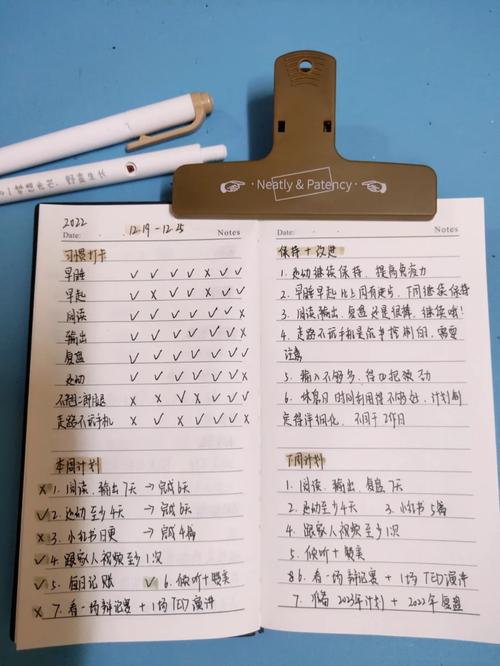 梦想光芒，野蛮生长
Neatly & Patency
2022
Date: 12.19 - 12.25 Notes
习惯打卡
早睡 ✓ ✓ ✓ ✓ × ✓ ✓
早起 ✓ × ✓ ✓ × ✓ ✓
阅读 ✓ ✓ ✓ ✓ ✓ ✓ ×
输出 ✓ ✓ ✓ ✓ ✓ ✓ ×
复盘 ✓ ✓ ✓ ✓ ✓ ✓ ×
运动 ✓ ✓ ✓ ✓ × × ×
不翘二郎腿 × × ✓ × ✓ ✓ ✓
走路不玩手机 × ✓ × × ✓ ✓ ×
本周计划
× 1. 阅读、输出7天 → 完成6天
✓ 2. 运动至少4天 → 完成4天
× 3. 小红书日更 → 完成4篇
✓ 4. 跟家人视频至少1次
✓ 5. 每日记账 ✓ 6. 倾听+赞美
× 7. 看一场辩论赛 + 1场TED演讲
Date: Notes
保持 + 改进
1. 运动继续保持，提高免疫力
2. 早睡早起比上周有进步，下周继续保持
3. 阅读、输出、复盘还是很棒，继续哦！
4. 走路不玩手机是你书控制的，需要
注意
5. 输入不够多，得四把领动
6. 休息日时间利用得不够好，计划制
定得详细化，不同于工作日
下周计划
1. 阅读、输出、复盘7天
2. 运动至少4天 3. 小红书5篇
4. 跟家人视频至少1次
5. 倾听+赞美
6. 看一场辩论赛 + 1场TED演讲
7. 准备2023年计划 + 2022年复盘